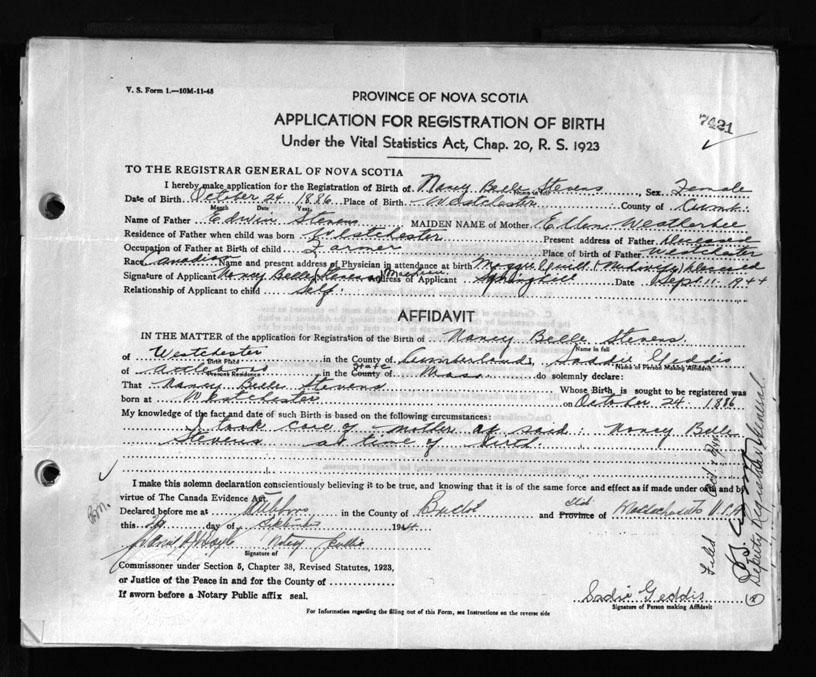 V. S. Form 1.—10M-11-43
PROVINCE OF NOVA SCOTIA
APPLICATION FOR REGISTRATION OF BIRTH
7421
Under the Vital Statistics Act, Chap. 20, R. S. 1923
TO THE REGISTRAR GENERAL OF NOVA SCOTIA
I hereby make application for the Registration of Birth of Nancy Belle Stevens, Sex Female
Date of Birth October 24 1886 Place of Birth Westchester County of Cumb.
Month Date Year
Name of Father Edwin Stevens MAIDEN NAME of Mother Ellen Weatherbee
Residence of Father when child was born Westchester Present address of Father Deceased
Occupation of Father at Birth of child Farmer Place of birth of Father Westchester
Race Canadian Name and present address of Physician in attendance at birth Maggie (Midwife) Deceased
Signature of Applicant Nancy Belle (Stevens) Address of Applicant Springhill Date Sept. 11. 1944
Relationship of Applicant to child Self.
AFFIDAVIT
IN THE MATTER of the application for Registration of the Birth of Nancy Belle Stevens.
Name in full
of Westchester in the County of Cumberland, Saddie Geddis
Birth Place Name of Person Making Affidavit
of in the County of State Mass. do solemnly declare:
Present Residence
That Nancy Belle Stevens Whose Birth is sought to be registered was
born at Westchester on October 24 1886
My knowledge of the fact and date of such Birth is based on the following circumstances:
I took care of mother of said: Nancy Belle
Stevens at time of birth.
I make this solemn declaration conscientiously believing it to be true, and knowing that it is of the same force and effect as if made under oath and by
virtue of The Canada Evidence Act.
Declared before me at in the County of and Province of Massachusetts U.S.A
this day of 1944
Notary Public
Signature of
Commissioner under Section 5, Chapter 38, Revised Statutes, 1923,
or Justice of the Peace in and for the County of
If sworn before a Notary Public affix seal.
Sadie Geddis
Signature of Person making Affidavit
For Information regarding the filling out of this Form, see Instructions on the reverse side
Filed
Deputy Registrar General